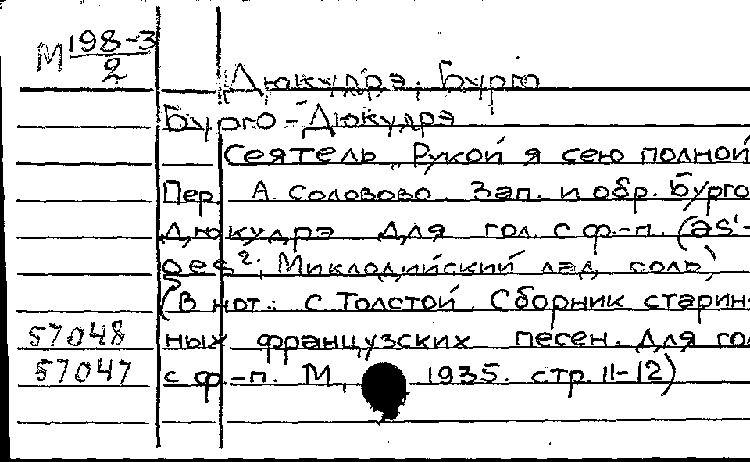 М 198-3/2
Дюкудрэ, Бурго
Бурго-Дюкудрэ
Сеятель. Рукой я сею полной
Пер. А. Соловово. Зап. и обр. Бурго
Дюкудрэ для гол. с ф.-п. (as'-
des²; Миклодийский лад, соль)
(В нот.: С. Толстой Сборник старин-
57048 ных французских песен. Для гол
57047 с ф.-п. М., 1935. стр. 11-12)